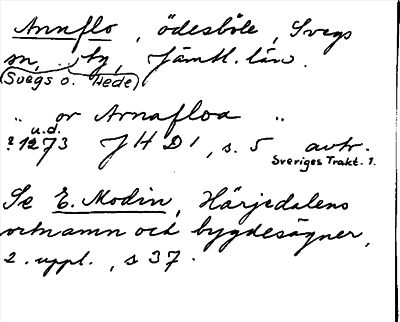 Annflo, ödesböle, Svegs
sn, .. tg, Jämtl. län.
(Svegs o. Hede)
„ or Arnafloa „
u.d.
?1273 JHD1, s. 5 avtr.
Sveriges Trakt. 1.
Se E. Modin, Härjedalens
ortnamn och bygdesägner,
2. uppl., s 37.